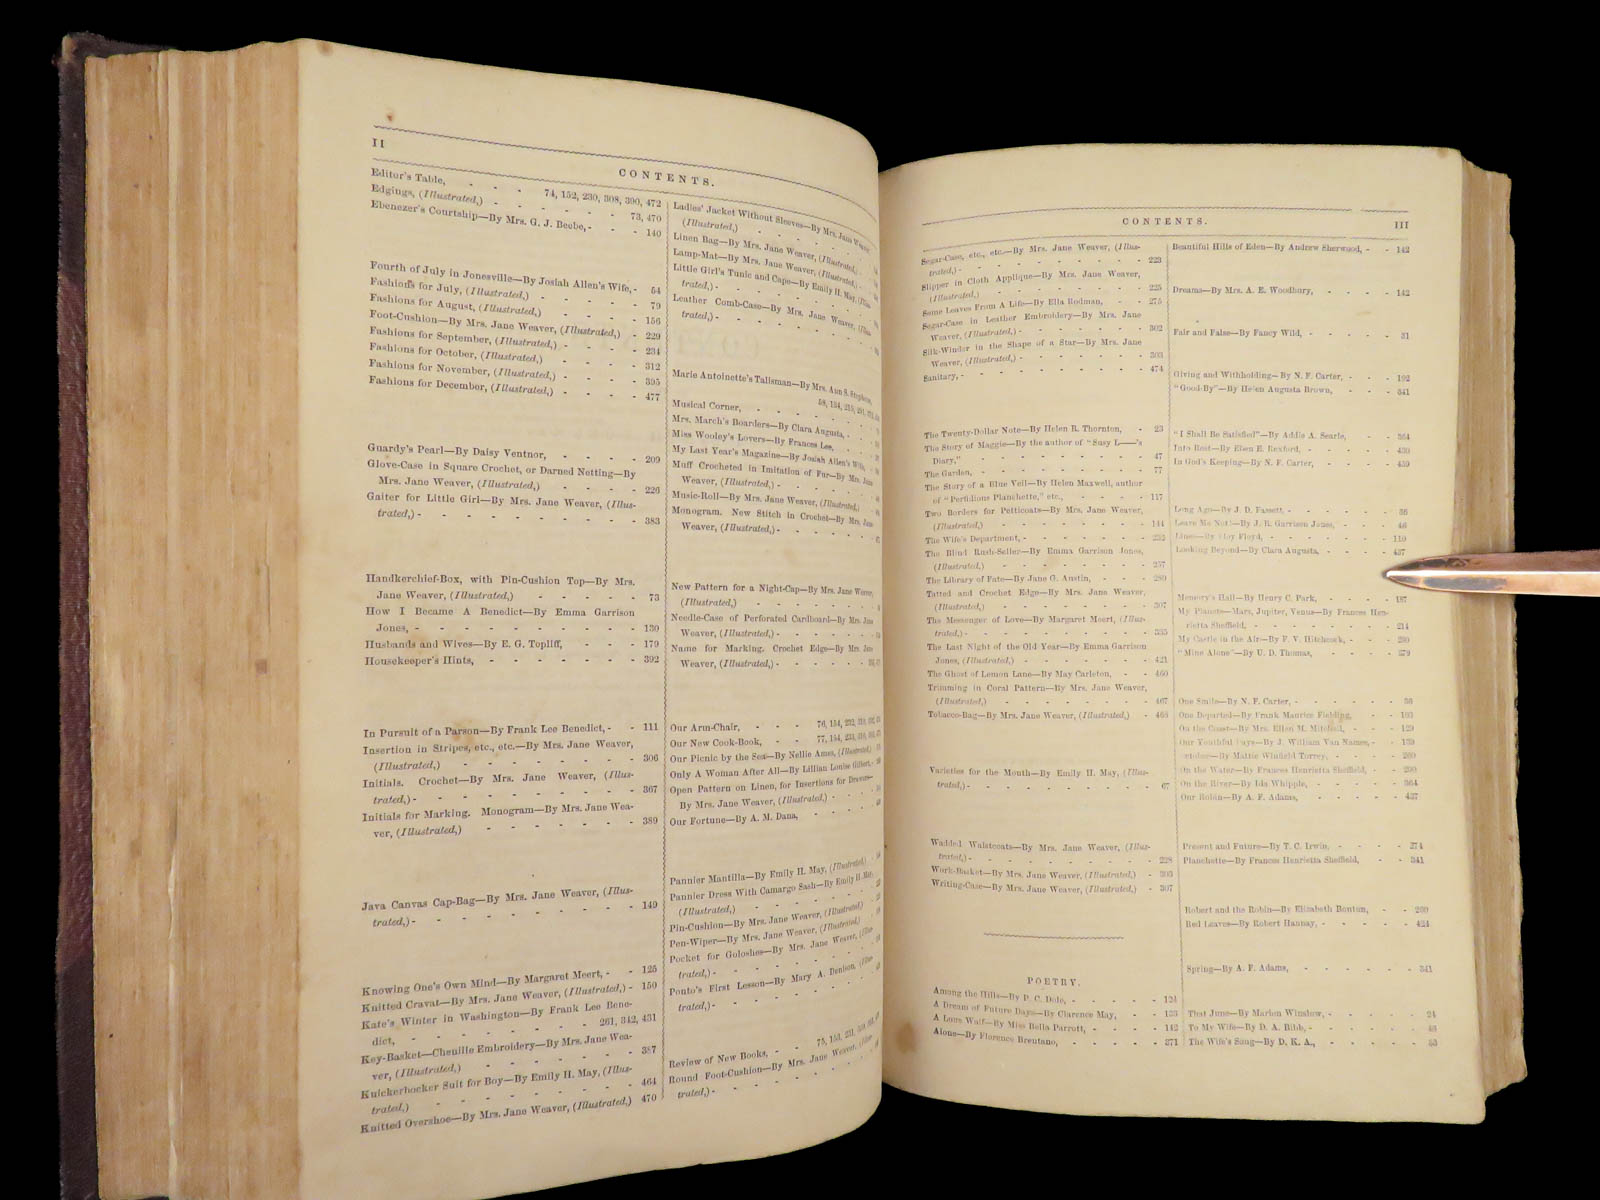 II
CONTENTS.
Editor's Table, - - - 74, 152, 230, 308, 390, 472
Edgings, (Illustrated,) - - - - - - 73, 470
Ebenezer's Courtship—By Mrs. G. J. Beebe, - - - 140
Fourth of July in Jonesville—By Josiah Allen's Wife, - 54
Fashions for July, (Illustrated,) - - - - 79
Fashions for August, (Illustrated,) - - - - 156
Foot-Cushion—By Mrs. Jane Weaver, (Illustrated,) - 229
Fashions for September, (Illustrated,) - - - - 234
Fashions for October, (Illustrated,) - - - - 312
Fashions for November, (Illustrated,) - - - - 395
Fashions for December, (Illustrated,) - - - - 477
Guardy's Pearl—By Daisy Ventnor, - - - - 209
Glove-Case in Square Crochet, or Darned Netting—By
Mrs. Jane Weaver, (Illustrated,) - - - - 226
Gaiter for Little Girl—By Mrs. Jane Weaver, (Illus-
trated,) - - - - - - - - - 383
Handkerchief-Box, with Pin-Cushion Top—By Mrs.
Jane Weaver, (Illustrated,) - - - - - 73
How I Became A Benedict—By Emma Garrison
Jones, - - - - - - - - - - 130
Husbands and Wives—By E. G. Topliff, - - - 179
Housekeeper's Hints, - - - - - - - 392
In Pursuit of a Parson—By Frank Lee Benedict, - - 111
Insertion in Stripes, etc., etc.—By Mrs. Jane Weaver,
(Illustrated,) - - - - - - - - 306
Initials. Crochet—By Mrs. Jane Weaver, (Illus-
trated,) - - - - - - - - - - 367
Initials for Marking. Monogram—By Mrs. Jane Wea-
ver, (Illustrated,) - - - - - - - 389
Java Canvas Cap-Bag—By Mrs. Jane Weaver, (Illus-
trated,) - - - - - - - - - - 149
Knowing One's Own Mind—By Margaret Meert, - - 125
Knitted Cravat—By Mrs. Jane Weaver, (Illustrated,) - 150
Kate's Winter in Washington—By Frank Lee Bene-
dict, - - - - - - - 261, 342, 431
Key-Basket—Chenille Embroidery—By Mrs. Jane Wea-
ver, (Illustrated,) - - - - - - - 387
Knickerbocker Suit for Boy—By Emily H. May, (Illus-
trated,) - - - - - - - - - 464
Knitted Overshoe—By Mrs. Jane Weaver, (Illustrated,) 470
Ladies' Jacket Without Sleeves—By Mrs. Jane Weaver
(Illustrated,) - - - - - - -
Linen Bag—By Mrs. Jane Weaver, (Illustrated,) -
Lamp-Mat—By Mrs. Jane Weaver, (Illustrated,) -
Little Girl's Tunic and Cape—By Emily H. May, (Illus-
trated,) - - - - - - - - -
Leather Comb-Case—By Mrs. Jane Weaver, (Illus-
trated,) - - - - - - - - -
Marie Antoinette's Talisman—By Mrs. Ann S. Stephens,
Musical Corner, - - - - - - -
Mrs. March's Boarders—By Clara Augusta, - -
Miss Wooley's Lovers—By Frances Lee, - - -
My Last Year's Magazine—By Josiah Allen's Wife,
Muff Crocheted in Imitation of Fur—By Mrs. Jane
Weaver, (Illustrated,) - - - - - -
Music-Roll—By Mrs. Jane Weaver, (Illustrated,) -
Monogram. New Stitch in Crochet—By Mrs. Jane
Weaver, (Illustrated,) - - - - - -
New Pattern for a Night-Cap—By Mrs. Jane Weaver,
(Illustrated,) - - - - - - -
Needle-Case of Perforated Cardboard—By Mrs. Jane
Weaver, (Illustrated,) - - - - - -
Name for Marking. Crochet Edge—By Mrs. Jane
Weaver, (Illustrated,) - - - - - -
Our Arm-Chair, - - - 76, 154, 232,
Our New Cook-Book, - - 77, 154, 233,
Our Picnic by the Sea—By Nellie Ames, (Illustrated,)
Only A Woman After All—By Lillian Louise Gilbert, -
Open Pattern on Linen, for Insertions for Drawers—
By Mrs. Jane Weaver, (Illustrated,) - - - -
Our Fortune—By A. M. Dana, - - - - -
Pannier Mantilla—By Emily H. May, (Illustrated,) -
Pannier Dress With Camargo Sash—By Emily H. May,
(Illustrated,) - - - - - - -
Pin-Cushion—By Mrs. Jane Weaver, (Illustrated,) -
Pen-Wiper—By Mrs. Jane Weaver, (Illustrated,) -
Pocket for Goloshes—By Mrs. Jane Weaver, (Illus-
trated,) - - - - - - - - -
Ponto's First Lesson—By Mary A. Denison, (Illus-
trated,) - - - - - - - - -
Review of New Books, - - 75, 153, 231,
Round Foot-Cushion—By Mrs. Jane Weaver, (Illus-
trated,) - - - - - - - - -
CONTENTS.
III
Segar-Case, etc., etc.—By Mrs. Jane Weaver, (Illus-
trated,) - - - - - - - - - 223
Slipper in Cloth Applique—By Mrs. Jane Weaver,
(Illustrated,) - - - - - - - - 225
Some Leaves From A Life—By Ella Rodman, - - 275
Segar-Case in Leather Embroidery—By Mrs. Jane
Weaver, (Illustrated,) - - - - - - - 302
Silk-Winder in the Shape of a Star—By Mrs. Jane
Weaver, (Illustrated,) - - - - - - - 303
Sanitary, - - - - - - - - - - 474
The Twenty-Dollar Note—By Helen R. Thornton, - 23
The Story of Maggie—By the author of "Susy L——'s
Diary," - - - - - - - - - 47
The Garden, - - - - - - - - - 77
The Story of a Blue Veil—By Helen Maxwell, author
of "Perfidious Planchette," etc., - - - - 117
Two Borders for Petticoats—By Mrs. Jane Weaver,
(Illustrated,) - - - - - - - - 144
The Wife's Department, - - - - - - - 232
The Blind Rush-Seller—By Emma Garrison Jones,
(Illustrated,) - - - - - - - - 257
The Library of Fate—By Jane G. Austin, - - - 280
Tatted and Crochet Edge—By Mrs. Jane Weaver,
(Illustrated,) - - - - - - - - 307
The Messenger of Love—By Margaret Meert, (Illus-
trated,) - - - - - - - - - 335
The Last Night of the Old Year—By Emma Garrison
Jones, (Illustrated,) - - - - - - - 421
The Ghost of Lemon Lane—By May Carleton, - - 460
Trimming in Coral Pattern—By Mrs. Jane Weaver,
(Illustrated,) - - - - - - - - 467
Tobacco-Bag—By Mrs. Jane Weaver, (Illustrated,) - 468
Varieties for the Month—By Emily H. May, (Illus-
trated,) - - - - - - - - - - 67
Wadded Waistcoats—By Mrs. Jane Weaver, (Illus-
trated,) - - - - - - - - - - 228
Work-Basket—By Mrs. Jane Weaver, (Illustrated,) - 303
Writing-Case—By Mrs. Jane Weaver, (Illustrated,) - 307
POETRY.
Among the Hills—By P. C. Dole, - - - - - 124
A Dream of Future Days—By Clarence May, - - 133
A Lone Waif—By Miss Bella Parrott, - - - - 142
Alone—By Florence Brentano, - - - - - 371
Beautiful Hills of Eden—By Andrew Sherwood, - - 142
Dreams—By Mrs. A. E. Woodbury, - - - - 142
Fair and False—By Fancy Wild, - - - - - 31
Giving and Withholding—By N. F. Carter, - - - 192
"Good-By"—By Helen Augusta Brown, - - - 341
"I Shall Be Satisfied"—By Addie A. Searle, - - 364
Into Rest—By Eben E. Rexford, - - - - - 430
In God's Keeping—By N. F. Carter, - - - - 459
Long Ago—By J. D. Fassett, - - - - - - 36
Leave Me Not!—By J. R. Garrison Jones, - - - 46
Lines—By Floy Floyd, - - - - - - - 110
Looking Beyond—By Clara Augusta, - - - - 437
Memory's Hall—By Henry C. Park, - - - - 187
My Planets—Mars, Jupiter, Venus—By Frances Hen-
rietta Sheffield, - - - - - - - 214
My Castle in the Air—By F. V. Hitchcock, - - - 260
"Mine Alone"—By U. D. Thomas, - - - - 279
One Smile—By N. F. Carter, - - - - - - 36
One Departed—By Frank Maurice Fielding, - - 103
On the Coast—By Mrs. Ellen M. Mitchell, - - - 129
Our Youthful Days—By J. William Van Namee, - - 139
October—By Mattie Winfield Torrey, - - - - 260
On the Water—By Frances Henrietta Sheffield, - - 290
On the River—By Ida Whipple, - - - - - 364
Our Robin—By A. F. Adams, - - - - - 437
Present and Future—By T. C. Irwin, - - - - 274
Planchette—By Frances Henrietta Sheffield, - - 341
Robert and the Robin—By Elizabeth Bouton, - - 260
Red Leaves—By Robert Hannay, - - - - - 424
Spring—By A. F. Adams, - - - - - - 341
That June—By Marion Winslow, - - - - - 24
To My Wife—By D. A. Bibb, - - - - - 46
The Wife's Song—By D. K. A., - - - - - 53